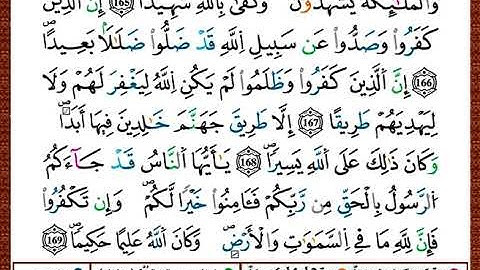 وَالْمَلَٰٓئِكَةُ يَشْهَدُونَ وَكَفَىٰ بِاللَّهِ شَهِيدًا 165 إِنَّ الَّذِينَ
كَفَرُواْ وَصَدُّواْ عَن سَبِيلِ اللَّهِ قَدْ ضَلُّواْ ضَلَٰلًا بَعِيدًا
166 إِنَّ الَّذِينَ كَفَرُواْ وَظَلَمُواْ لَمْ يَكُنِ اللَّهُ لِيَغْفِرَ لَهُمْ وَلَا
لِيَهْدِيَهُمْ طَرِيقًا 167 إِلَّا طَرِيقَ جَهَنَّمَ خَٰلِدِينَ فِيهَا أَبَدًا
وَكَانَ ذَٰلِكَ عَلَى اللَّهِ يَسِيرًا 168 يَٰٓأَيُّهَا النَّاسُ قَدْ جَآءَكُمُ
الرَّسُولُ بِالْحَقِّ مِن رَّبِّكُمْ فَـَٔامِنُواْ خَيْرًا لَّكُمْ وَإِن تَكْفُرُواْ
فَإِنَّ لِلَّهِ مَا فِي السَّمَٰوَٰتِ وَالْأَرْضِ وَكَانَ اللَّهُ عَلِيمًا حَكِيمًا 169